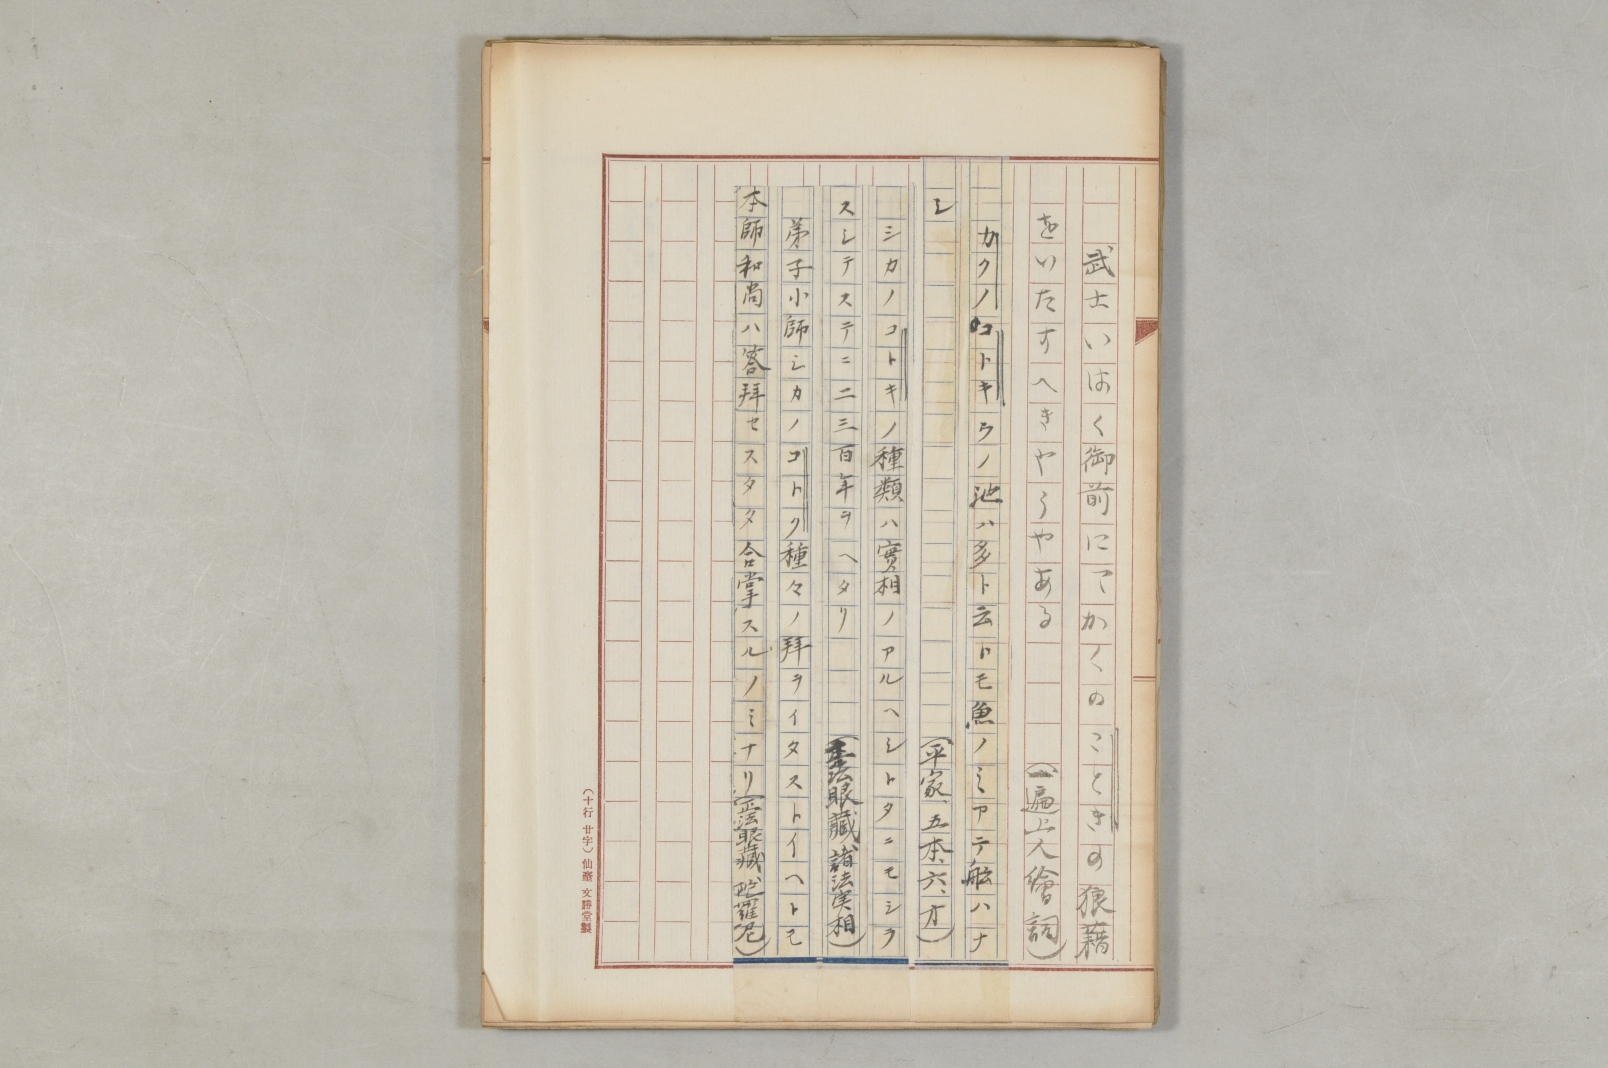 武士いはく御前にてかくのことき の狼藉
をいたすへきやうやある（一遍上人繪詞）
カクノコトキラノ池ハ多ト云トモ魚ノミアテ舩ハナ
シ（平家、五本、六、オ）
シカノコトキノ種類ハ實相ノアルヘシトタニモシラ
スシテステニ二三百年ヲヘタリ（正法眼藏諸法実相）
弟子小師シカノコトク種々ノ拜ヲイタストイヘトモ
本師和尚ハ答拜セスタタ合掌スルノミナリ（正法眼藏陀羅尼）
（十行 廿字）仙臺 文勝堂製